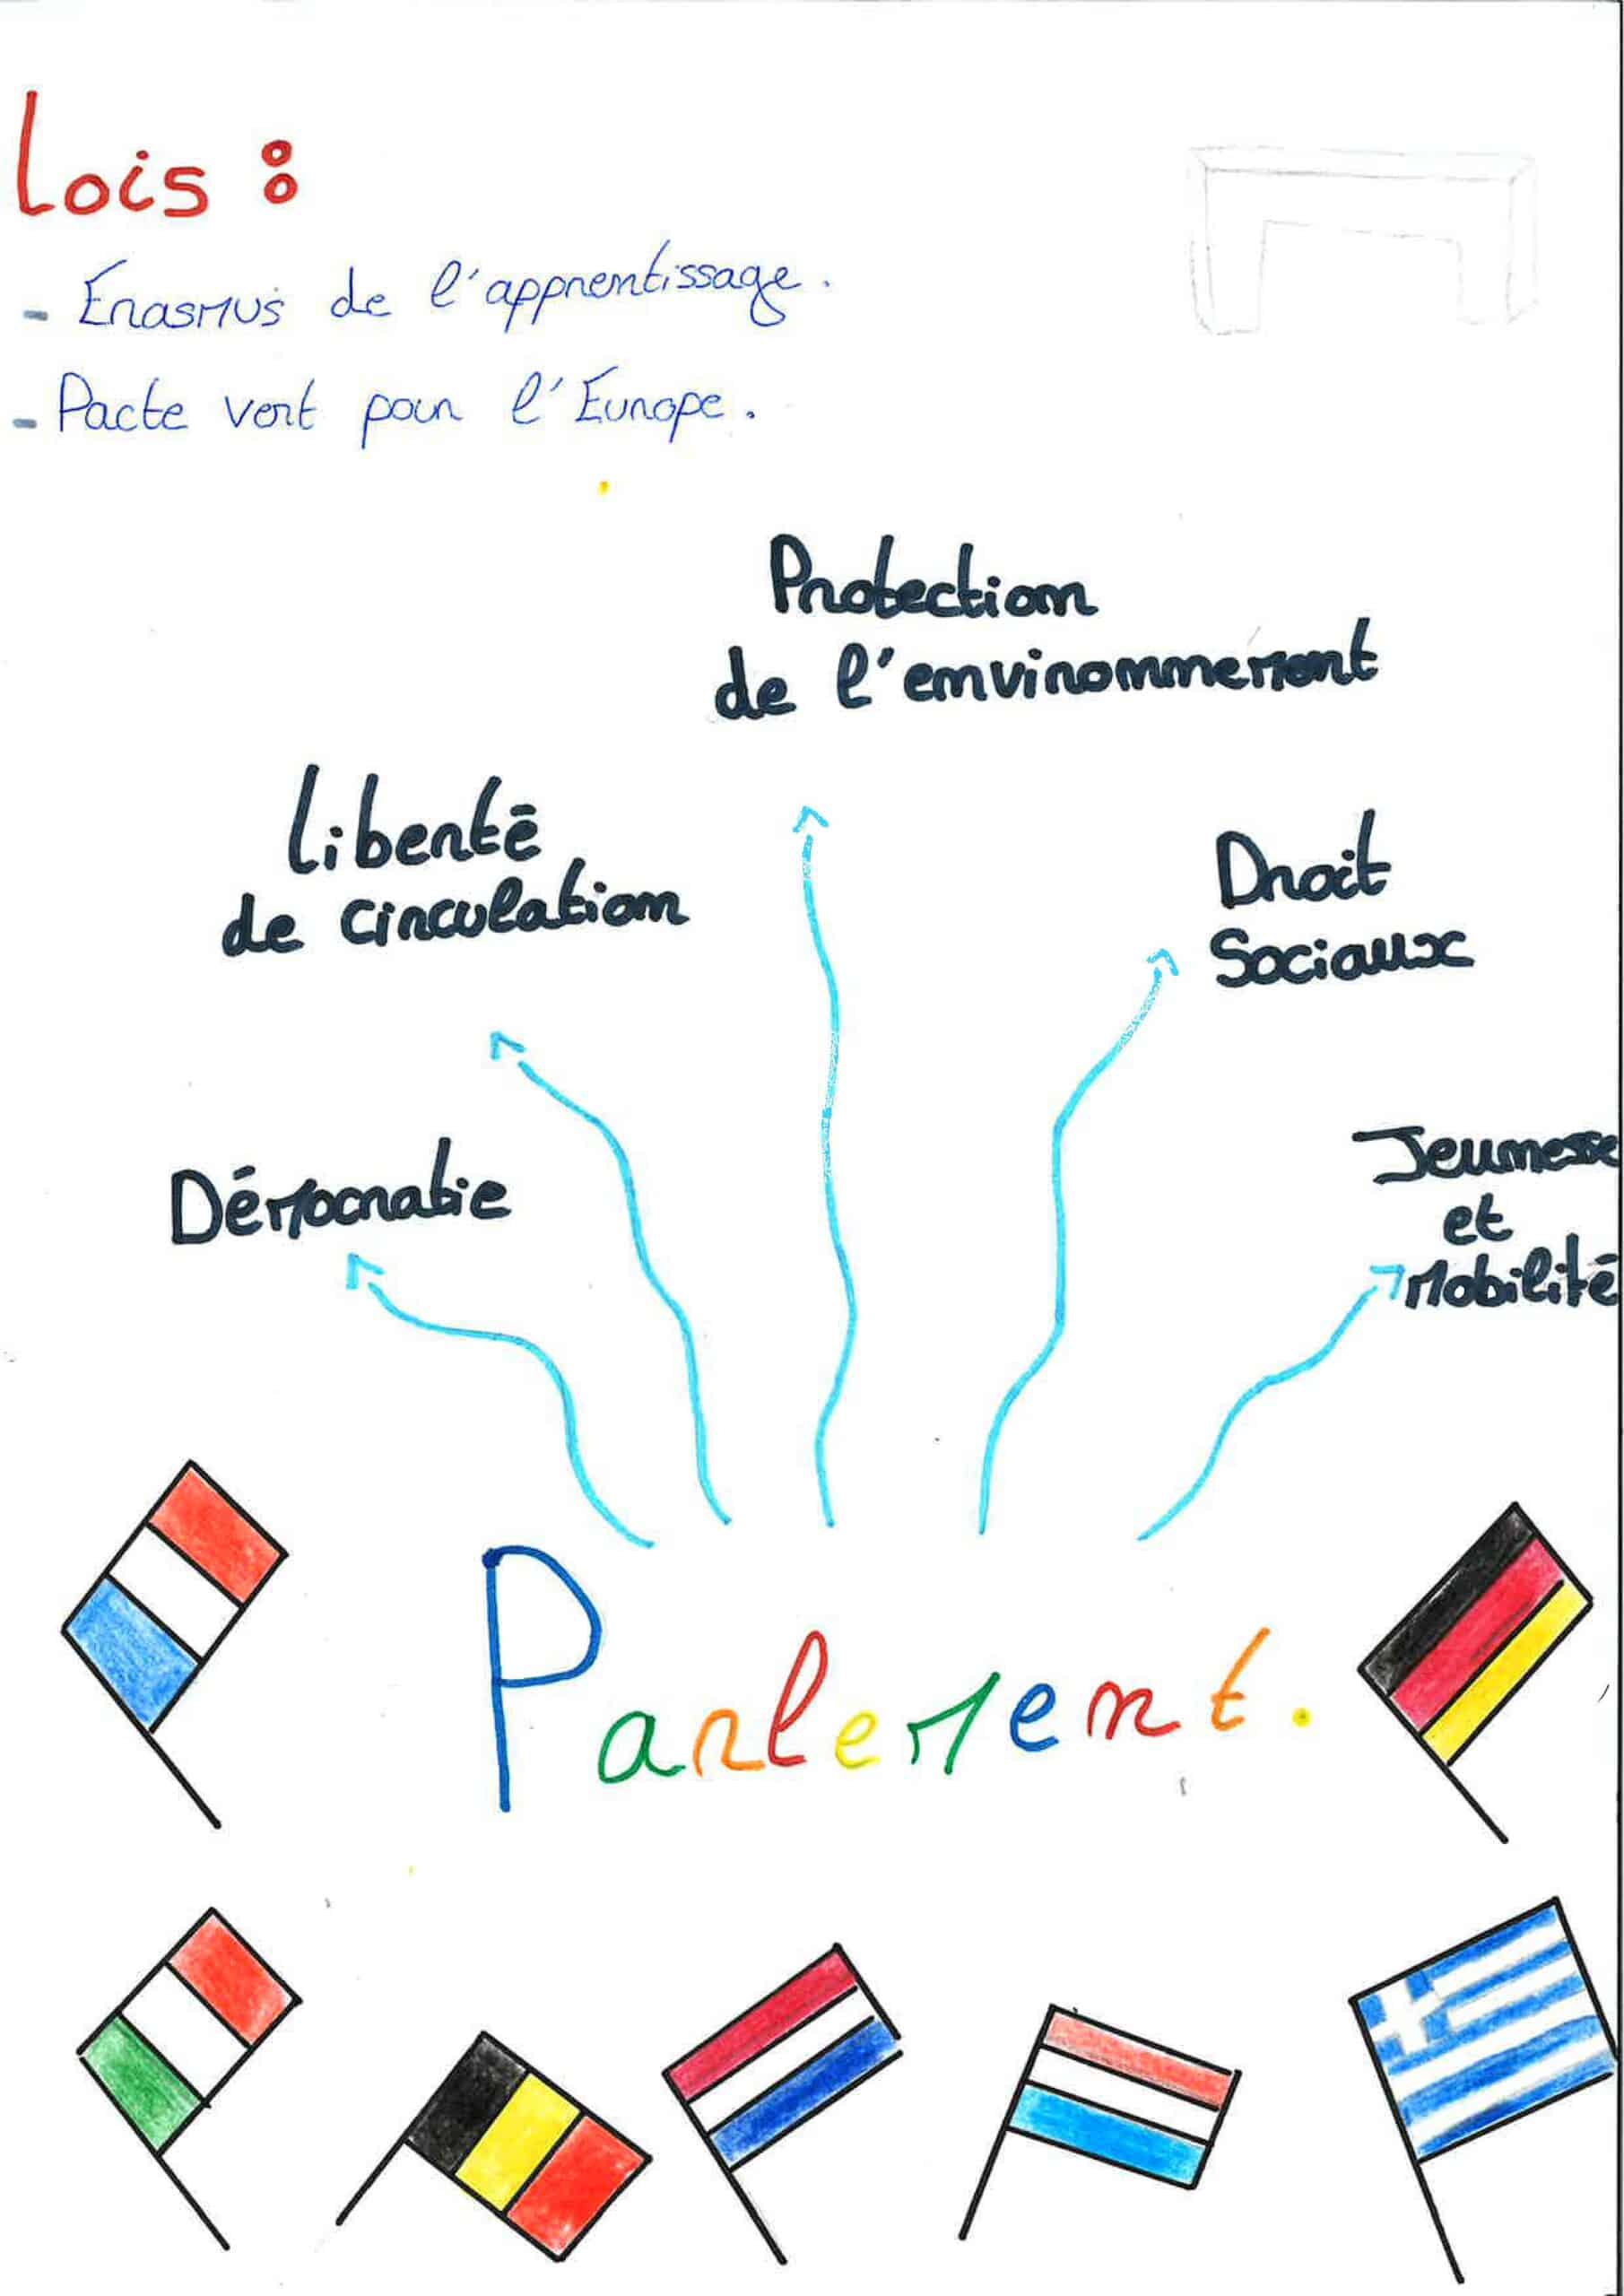 Lois :
- Erasmus de l'apprentissage.
- Pacte vert pour l'Europe.
Protection
de l'environnement
Liberté
de circulation
Droit
Sociaux
Démocratie
Jeunesse
et
Mobilité
Parlement.